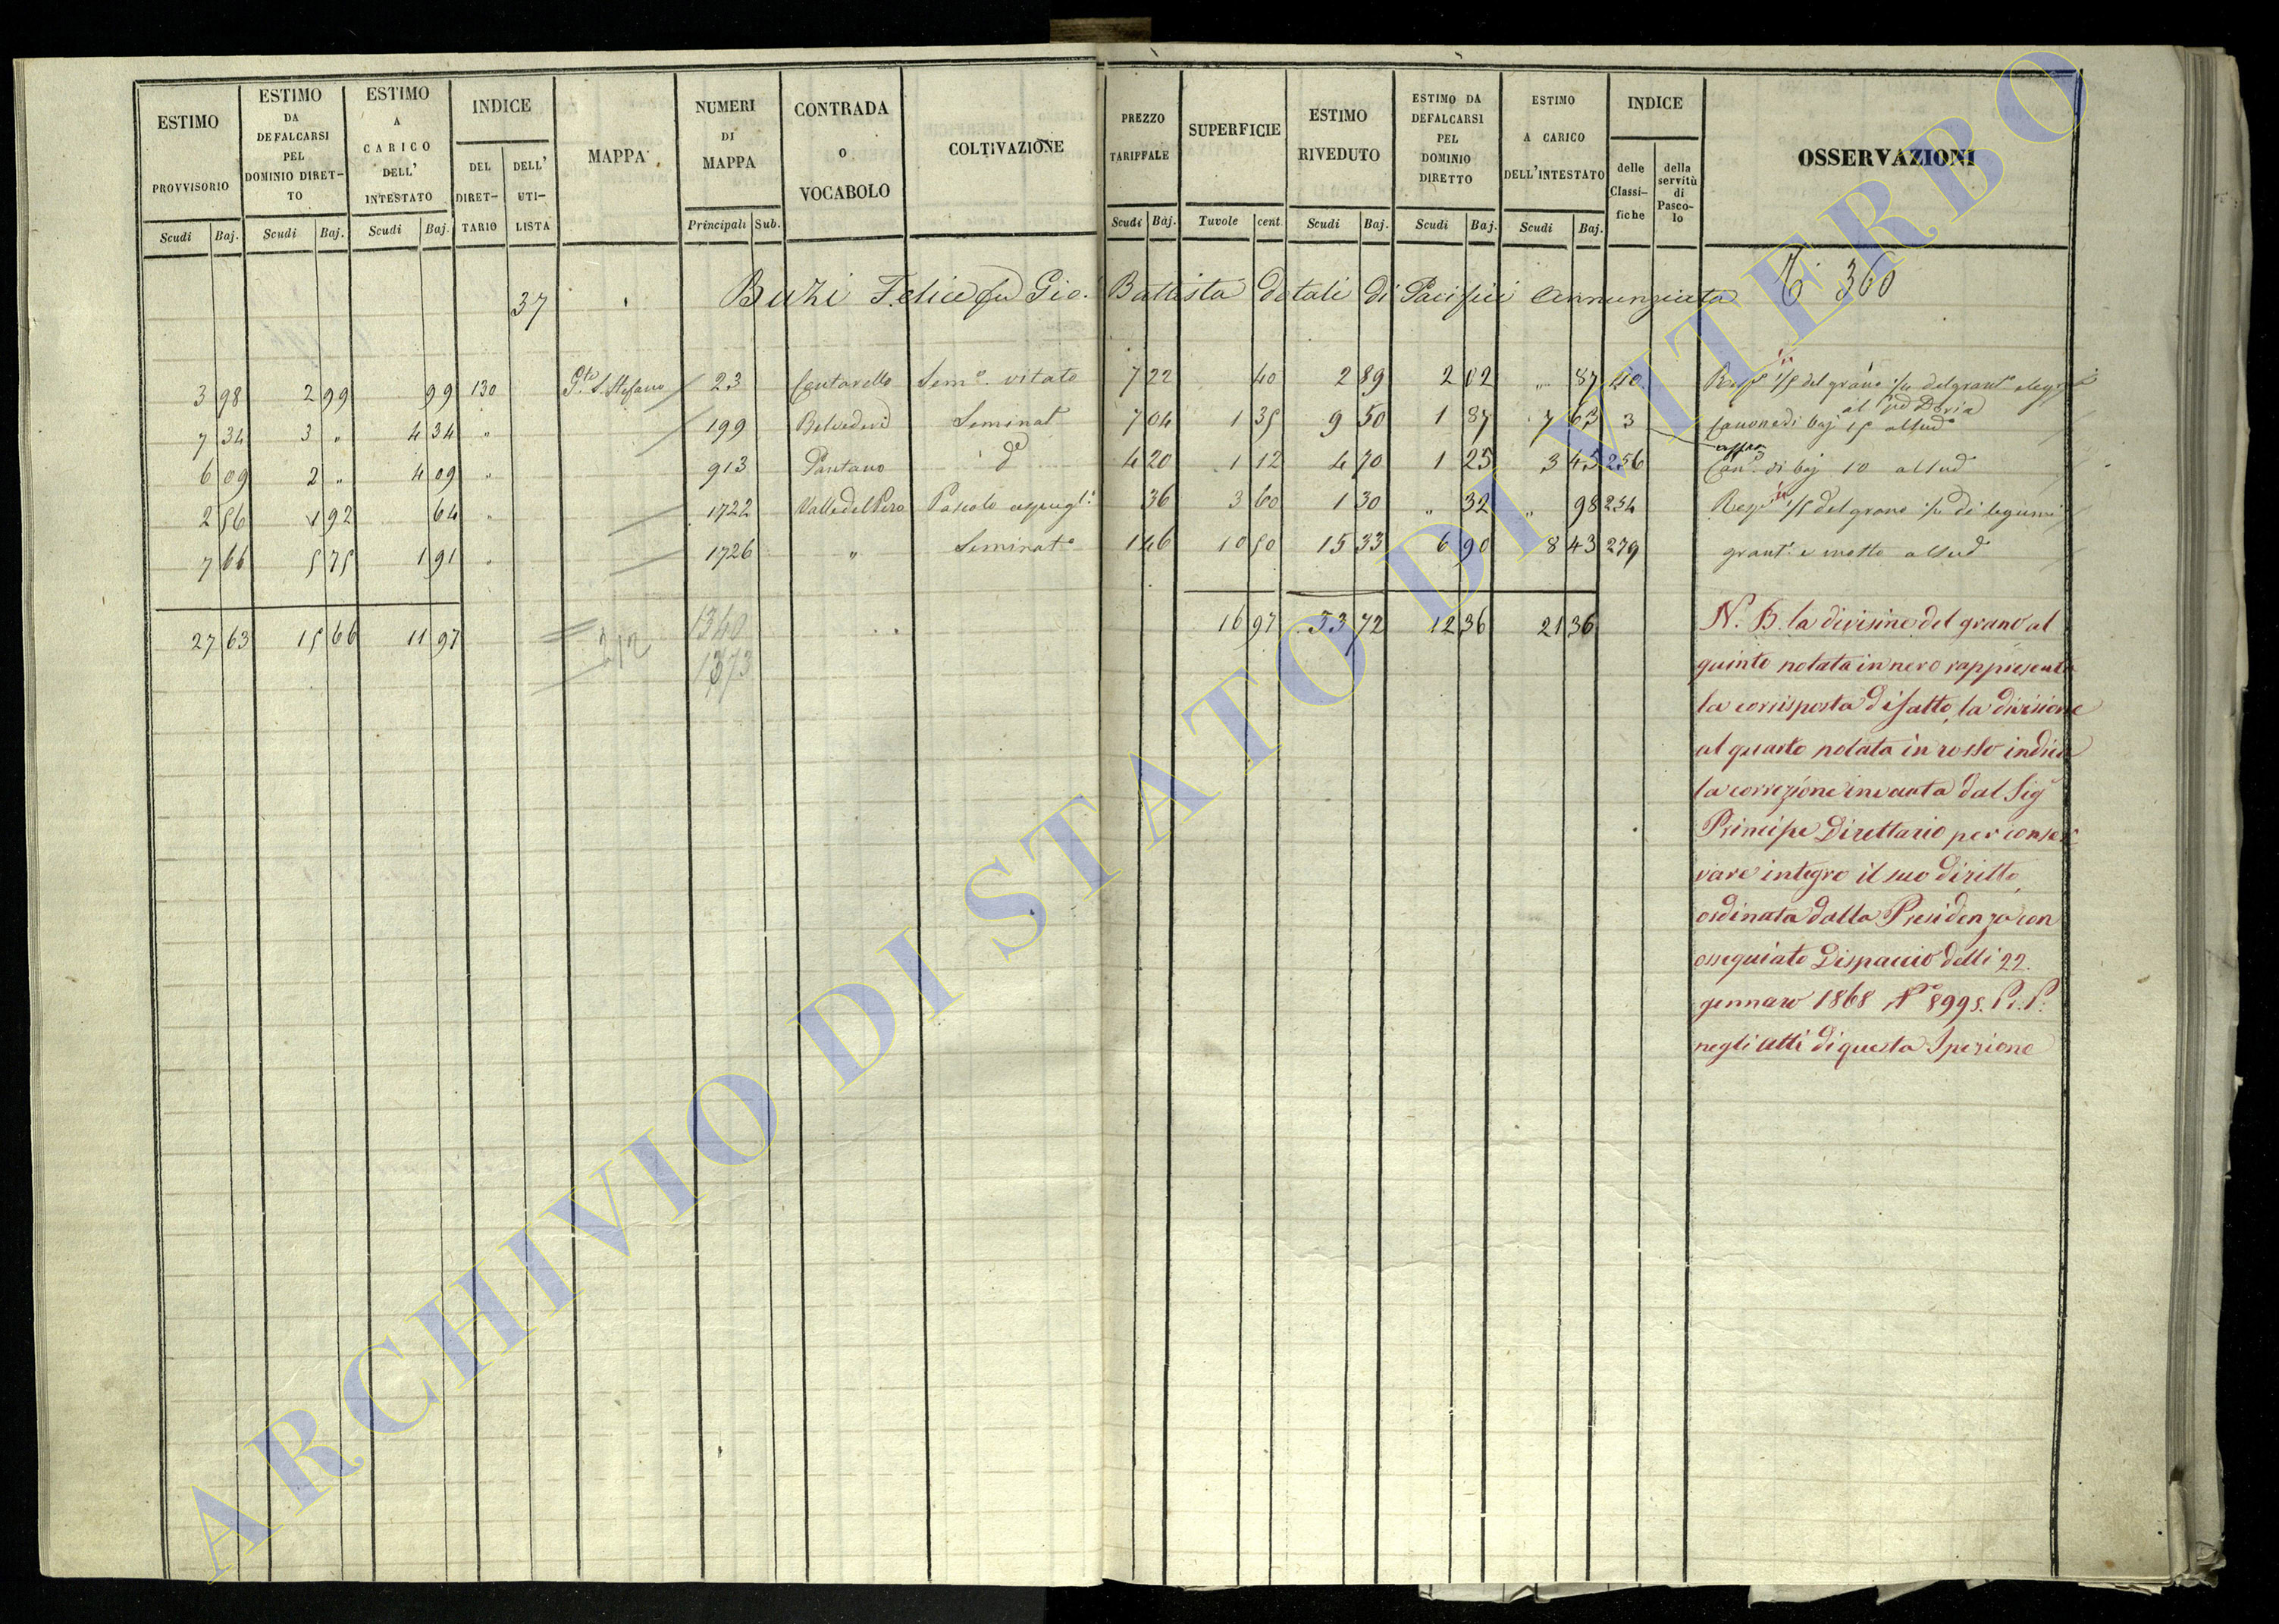 ESTIMO PROVVISORIO Scudi Baj.
ESTIMO DA DEFALCARSI PEL DOMINIO DIRETTO Scudi Baj.
ESTIMO A CARICO DELL' INTESTATO Scudi Baj.
INDICE DEL DIRETTARIO DELL' UTILISTA
MAPPA
NUMERI DI MAPPA Principali Sub.
CONTRADA O VOCABOLO
COLTIVAZIONE
PREZZO TARIFFALE Scudi Baj.
SUPERFICIE Tavole cent.
ESTIMO RIVEDUTO Scudi Baj.
ESTIMO DA DEFALCARSI PEL DOMINIO DIRETTO Scudi Baj.
ESTIMO A CARICO DELL'INTESTATO Scudi Baj.
INDICE delle Classifiche della servitù di Pascolo
OSSERVAZIONI
37 Buzi Felice fu Gio. Battista dotali di Pacifici Annunziata 360
3 98 2 99 99 130 Gta S. Stefano 23 Cantarello Semo. vitato 7 22 40 2 89 2 02 „ 87 40 Rispe 1/5 del grano
al Pd Doria
7 34 3 „ 4 34 „ 199 Belvedere Seminato 7 04 1 35 9 50 1 87 7 63 3 Canone di baj 15 al sudo
6 09 2 „ 4 09 „ 913 Pantano do 4 20 1 12 4 70 1 25 3 45 256 Cane di baj 10 al sud
2 56 1 92 64 „ 1722 Valle del Pero Pascolo cespugl. 36 3 60 1 30 „ 32 „ 98 254 Rispe 1/5 del grano di legumi
7 66 5 75 1 91 „ 1726 „ Seminato 1 46 10 50 15 33 6 90 8 43 279 grant. e metto al sud
27 63 15 66 11 97 16 97 33 72 12 36 21 36
212 1340
1373
N. B. la divisione del grano al
quinto notata in nero rappresenta
la corrisposta di fatto, la divisione
al quarto notata in rosso indica
la correzione invocata dal Sig
Principe Direttario per conser
vare integro il suo diritto,
ordinata dalla Presidenza con
ossequiato Dispaccio delli 22.
gennaro 1868 No 8995. P. P.
negli atti di questa Ispezione
ARCHIVIO DI STATO DI VITERBO